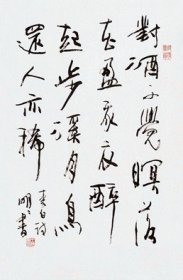 對酒不覺暝落
花盈我衣醉
起步溪月鳥
還人亦稀
李白詩
明書